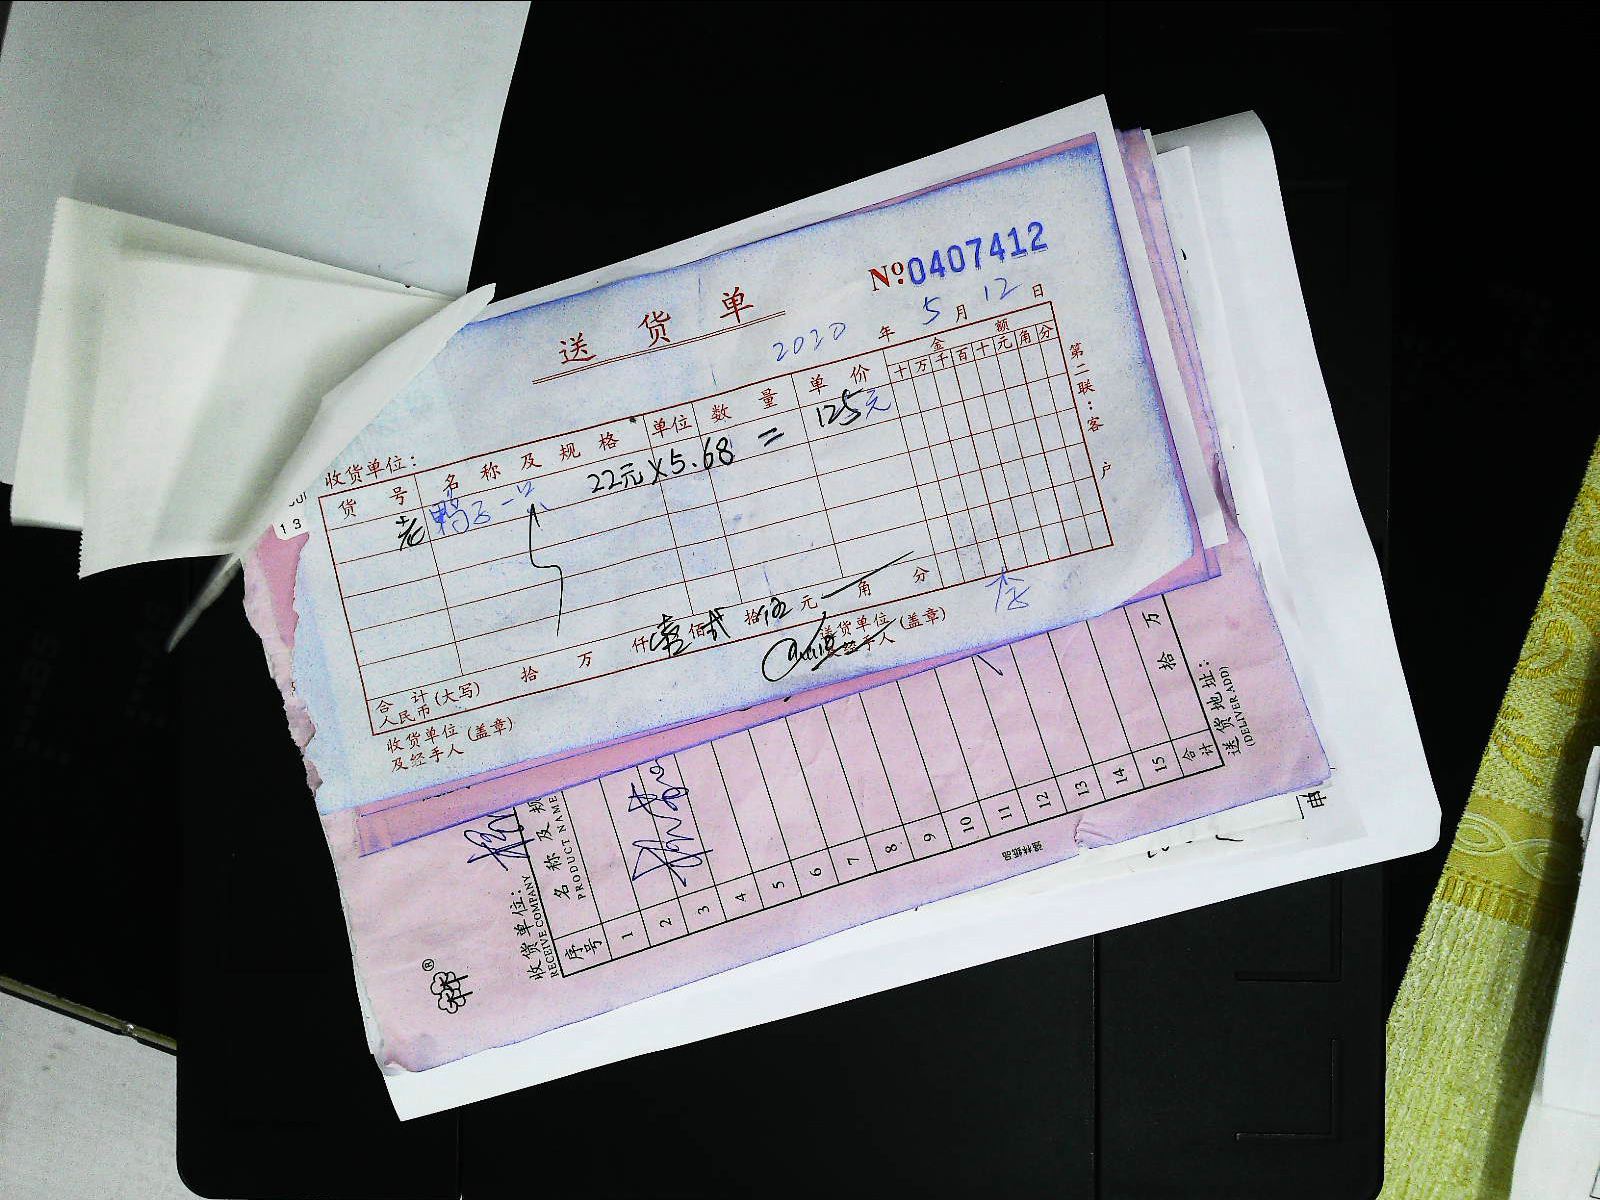 送货单
№0407412
2020年5月12日
收货单位:
货号 名称及规格 单位 数量 单价 金额
十万千百十元角分
老鸭子一只 22元×5.68=125元
第二联:客户
合计人民币(大写) 拾 万 仟壹佰贰拾伍元 角 分
收货单位及经手人(盖章) 送货单位及经手人(盖章) 李
13
收货单位:
RECEIVE COMPANY
序号 名称及规
PRODUCT NAME
1
2
3
4
5
6
7
8
9
10
11
12
13
14
15
合计 拾 万
送货地址:
(DELIVER ADD)
®